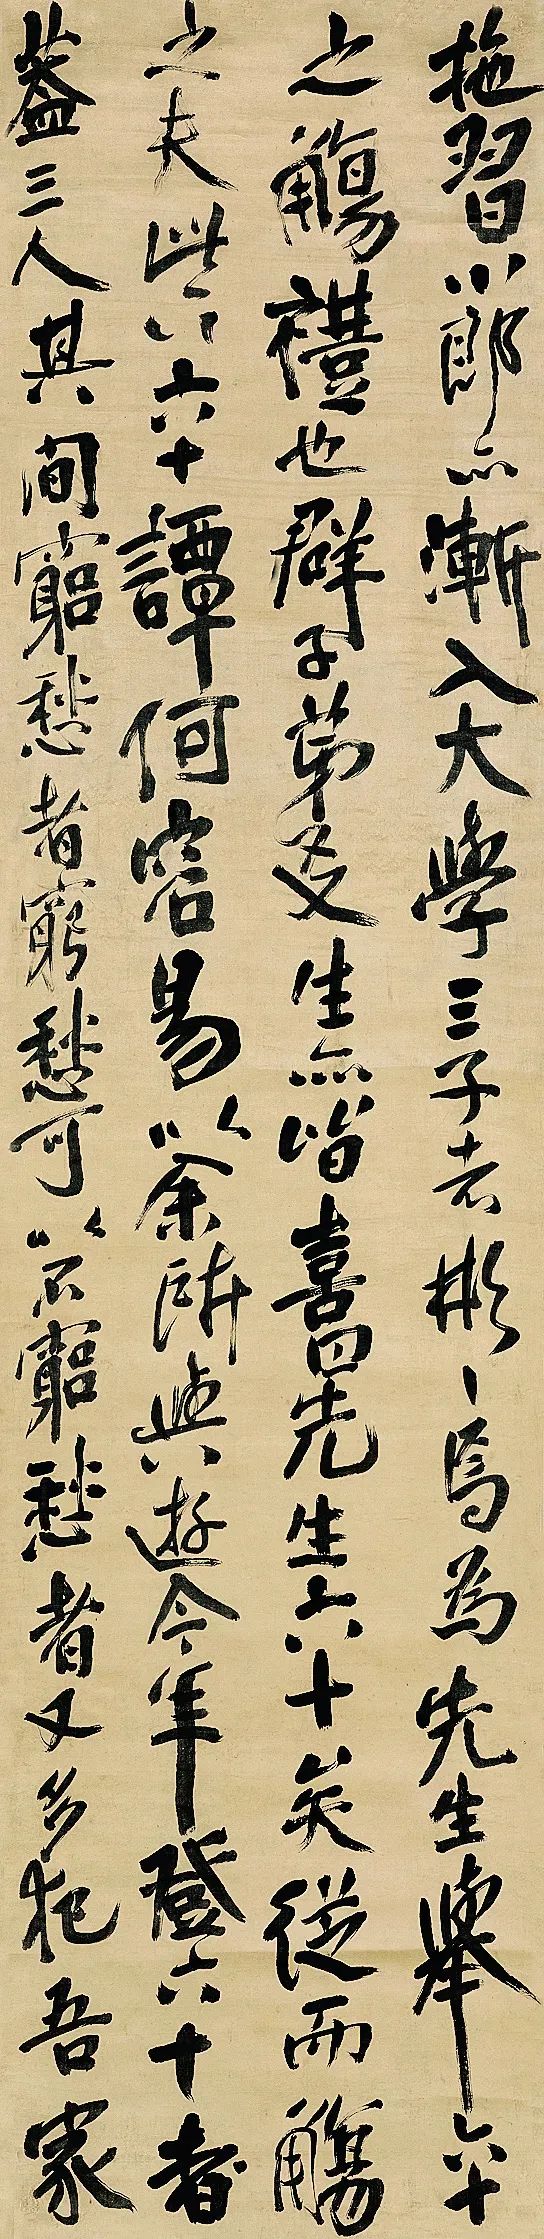 習小郎亦漸入大學三子者彬彬焉為先生舉六十
之觴禮也群子弟友生亦皆喜曰先生六十矣從而觴
之夫此六十譚何容易以余所與遊今年登六十者
蓋三人其間窮愁者窮愁可以不窮愁者又多犯吾家